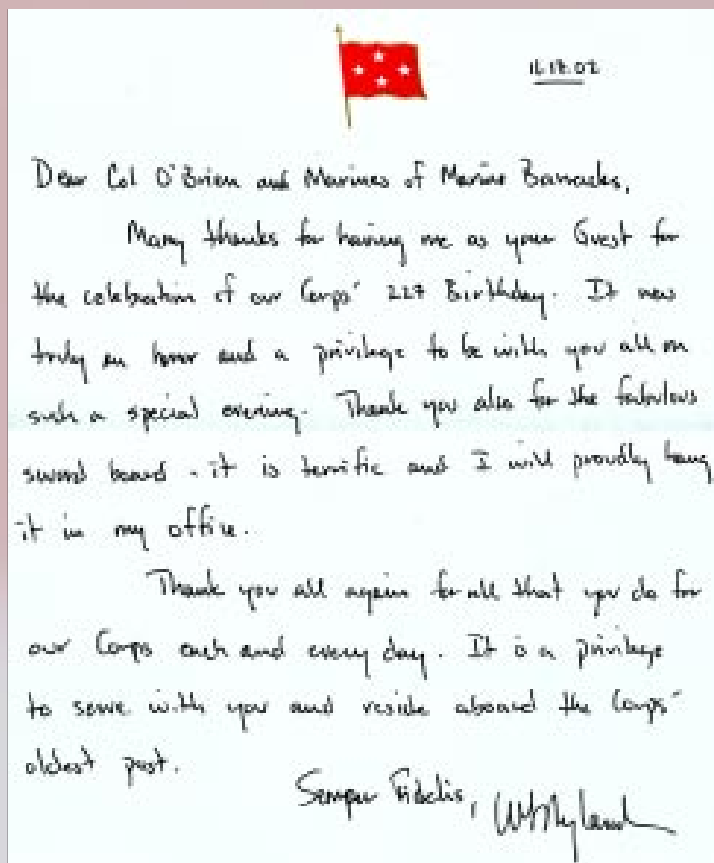 Dear Col O'Brien and Marines of Marine Barracks,
Many thanks for having me as your Guest for
the celebration of our Corps' 227 Birthday. It was
truly an honor and a privilege to be with you all on
such a special evening. Thank you also for the fabulous
sword board - it is terrific and I will proudly hang
it in my office.
Thank you all again for all that you do for
our Corps each and every day. It is a privilege
to serve with you and reside aboard the Corps'
oldest post.
Semper Fidelis,